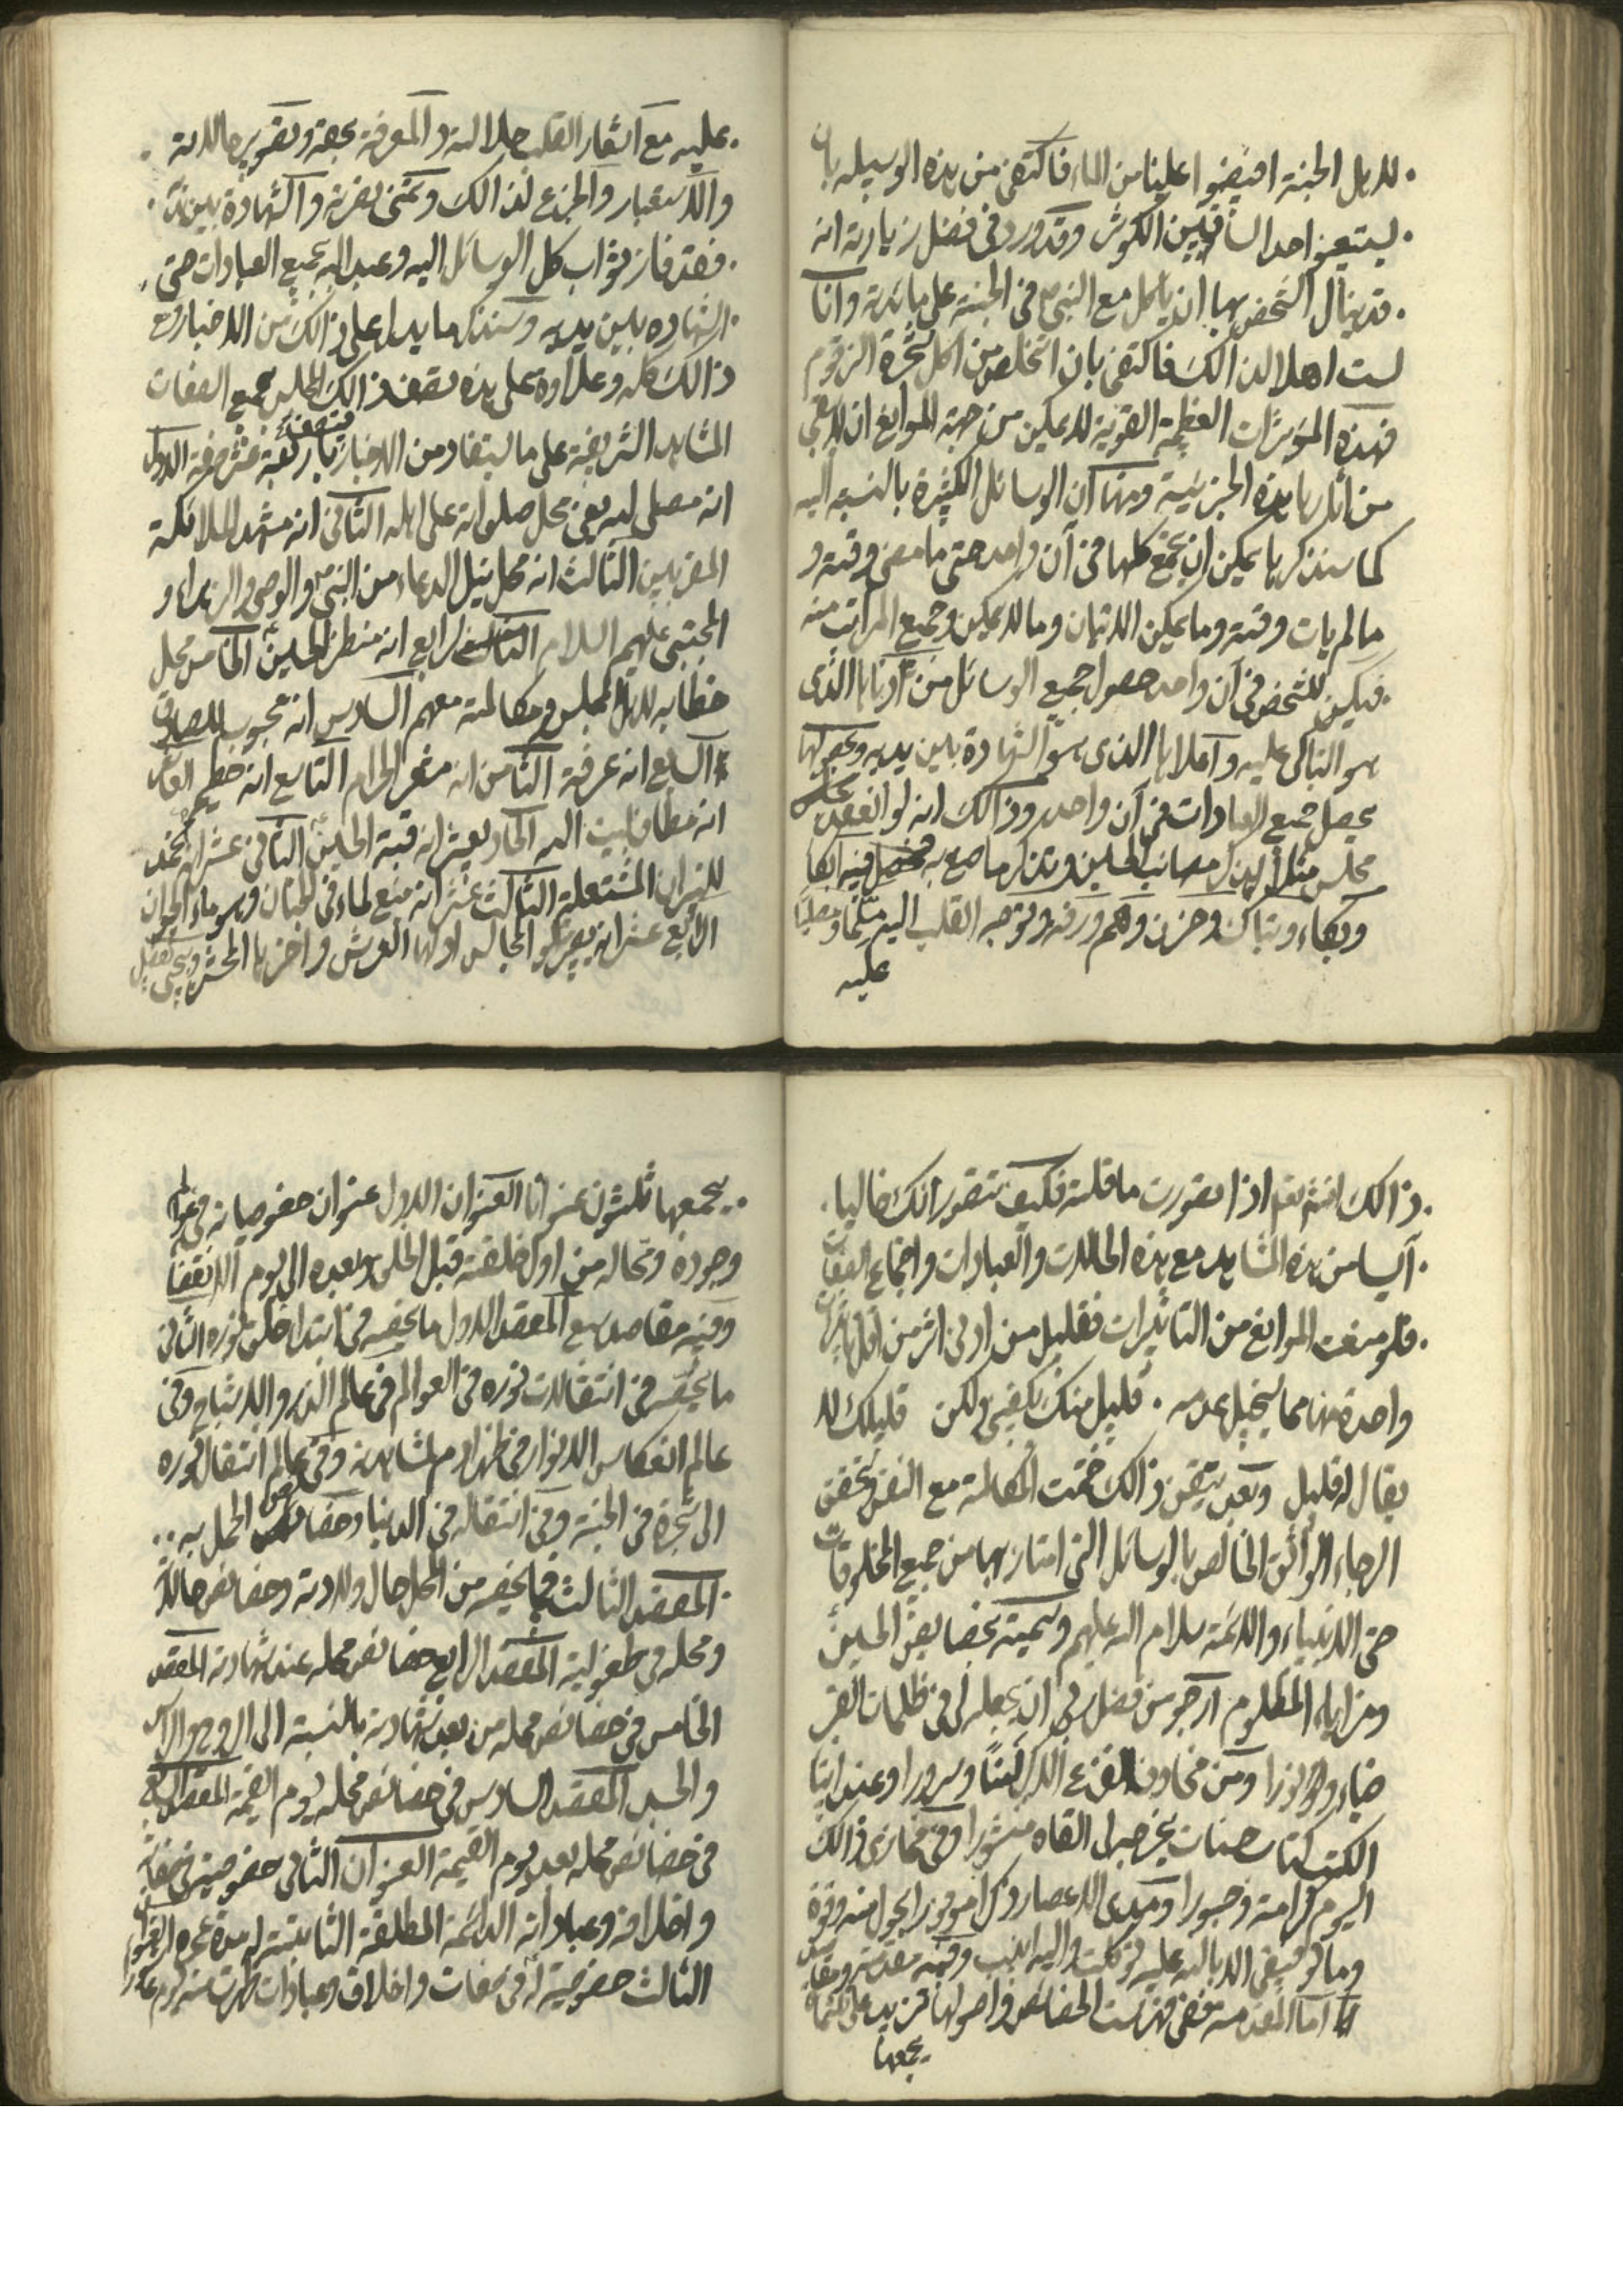 لاهل الجنة افيضوا علينا من الماء فاكتفى من هذه الوسيله بان
ليتعين احد الساقيين الكوثر وقد ورد في فضل زيارته انه
قد ينال الشخص بها ان ياكل مع النبي ص في الجنة على مائدته وانا
لست اهلا لذالك فاكتفى بان اتخلص من اكل شجرة الزقوم
فهذه المؤثرات العظيمة القوية لا يمكن من جهة الموانع ان لا يبقى
من اثارها هذه الجزئية ومنها ان الوسائل الكثيرة بالنسبه اليه
كما سنذكرها يمكن ان يجمع كلها في آن واحد حتى ما مضى وقته و
ما لم يات وقته وما يمكن الاتيان وما لا يمكن وجميع المراتب منه
فيكون للشخص في آن واحد حصول جميع الوسائل من ادناها الذى
هو التباكى عليه واعلاها الذى هو الشهادة بين يديه وبحصولها
يحصل جميع العبادات في آن واحد وذالك انه لو انعقد مجلس
مجلس مثلا لذكر مصائب الحسين ع وتذكر ما صنع به فحصل فيه ابكا
وبكاء وتباك وحزن وهم ورقة وتوجه القلب اليه مسلما ومصليا
عليه
عليه مع استشعار القلب جلالته والمعرفة بحقه وتصوير حالاته
والاستعبار والجزع لذالك وتمنى نصرته والشهادة بين يديه
فقد فاز بثواب كل الوسائل اليه وعبد الله بجميع العبادات حتى
الشهاده بين يديه وسنذكر ما يدل على ذالك من الاخبار ومع
ذالك كله وعلاوه على هذه يتصف ذالك المجلس بجميع الصفات
المشاهد الشريفة على ما يستفاد من الاخبار باربعة عشر صفة الاول
انه مصلى لله يعنى محل صلواته على اهله الثانى انه مشهد الملائكة
المقربين الثالث انه محل نيل الدعاء من النبي ص والوصى والزهراء و
المجتبى عليهم السلام الرابع انه منظر الحسين ع الخامس محل
خطابه لاهل المجلس ومكالمته معهم السادس انه محبوب للصادق
السابع انه عرفة الثامن انه مشعر الحرام التاسع انه حطيم العاشر
انه مطاف بيت الله الحاديعشر انه قبة الحسين ع الثانى عشر انه مخمد
للنيران المشتعلة الثالث عشر انه منبع لماء في الجنان وهو ماء الحيوان
الرابع عشر انه يصير المجالس اولها العرش واخرها المحشر
ذالك انشاء الله اذا تصورت ما قلته فكيف تتصور انك خاليا
آيسا من هذه المشاهد مع هذه الحالات والعبادات واجتماع الصفات
فلو منعت الموانع من التاثيرات فقليل من ادنى اثر من اقل تاثيرات
واحدة منها مما يستحيل عدمه ٠ قليل منك يكفينى ولكن قليلك لا
يقال له قليل وبعد تيقن ذالك ختمت المكالمة مع النفس بتحقق
الرجاء الواثق الخالص بالوسائل التى امتاز بها من جميع المخلوقات
حتى الانبياء والائمة سلام الله عليهم وسميته بخصايص الحسين ع
ومزايا المظلوم ارجو من فضل ربى ان يجعله لى في ظلمات القبر
ضياء ونورا ومن مخاوف الفزع الاكبر امنا وسرورا وعند ايتاء
الكتب كتاب حسنات يخرج لى القاه منشورا وفي مجازى ذالك
اليوم كرامة وحبورا ومدى الاعصار ذكرا موفورا بحول منه وقوة
وما توفيقى الا بالله عليه توكلت واليه انيب وفيه مقدمة ومقاصد
اما المقدمة ففى فهرست الخصائص واصولها فتزيد على ثلثمائة
يجمعها
يجمعها ثلثون عنوانا العنوان الاول عنوان خصوصياته في عوالم
وجوده ومحاله من اول خلقته قبل الخلق وبعده الى يوم الانقضاء
وفيه مقاصد سبع المقصد الاول ما يخصه في ابتداء خلق نوره الثانى
ما يختص في انتقالات نوره في العوالم في عالم الذر والاشباح وفي
عالم انعكاس الانوار في ظهر آدم لمشاهدته وفي عالم انتقال نوره
الى شجرة في الجنة وفي انتقاله في الدنيا وخصائص الحمل به
المقصد الثالث فيما يخصه من المحل حال ولادته وخصائص حاله
ومحله في طفوليته المقصد الرابع خصائص محله عند شهادته المقصد
الخامس في خصائص محله من بعد شهادته بالنسبة الى الروح والراس
والجسد المقصد السادس في خصائص محله يوم القيمة المقصد السابع
في خصائص محله بعد يوم القيمة العنوان الثانى خصوصيته في صفاته
واخلاقه وعباداته الدائمة المطلقة الثابتة له مدة عمره العنوان
الثالث خصوصيته ع في صفات واخلاق وعبادات ظهرت منه يوم عاشورا